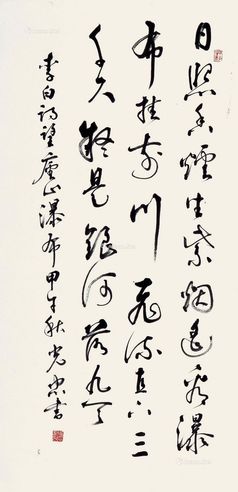 日照香爐生紫烟遥看瀑
布挂前川飛流直下三
千尺疑是銀河落九天
李白詩望廬山瀑布甲午秋書